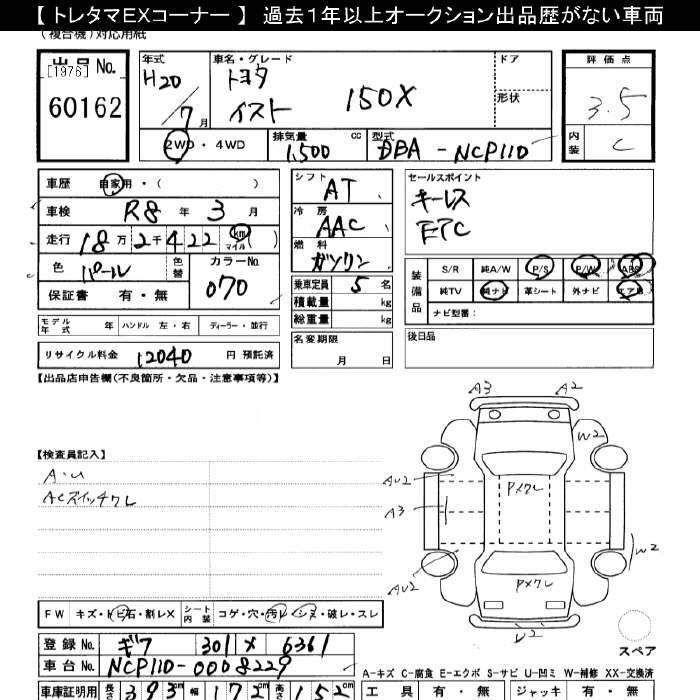 【 トレタマEXコーナー 】 過去1年以上オークション出品歴がない車両
(複合機)対応用紙
出品 No.
[1976]
60162
年式
H20
7月
車名・グレード
トヨタ
イスト 150X
ドア
形状
評価点
3.5
内装
C
2WD・4WD
排気量 cc
1,500
型式
DBA - NCP110
車歴 自家用・( )
車検 R8 年 3 月
走行 18 万 2 千 4 22 km マイル ( )
色 パール 色替
カラーNo. 070
保証書 有・無
シフト
AT
冷房
AAC
燃料
ガソリン
乗車定員 5 名
積載量 kg
総重量 kg
セールスポイント
キーレス
ETC
装備品
S/R 純A/W P/S P/W ABS
純TV 純ナビ 革シート 外ナビ エアB
ナビ型番：
モデル年式 年 ハンドル 左・右 ディーラー・並行
リサイクル料金 12040 円 預託済
名変期限
月 日
後日品
【出品店申告欄(不良箇所・欠品・注意事項等)】
【検査員記入】
A・U
ACスイッチワレ
A3 A2
W2
AU2
Pメクレ
A3
W2
AU2
Pメクレ
U2
スペア
FW キズ・トビ石・割レX シート内装 コゲ・穴・汚レ・シミ・破レ・スレ
登録 No. ギフ 301 X 6361
車台 No. NCP110-0008229
A-キズ C-腐食 E-エクボ S-サビ U-凹ミ W-補修 XX-交換済
車庫証明用 長さ 393 cm 幅 172 cm 高さ 152 cm
工具 有・無 ジャッキ 有・無